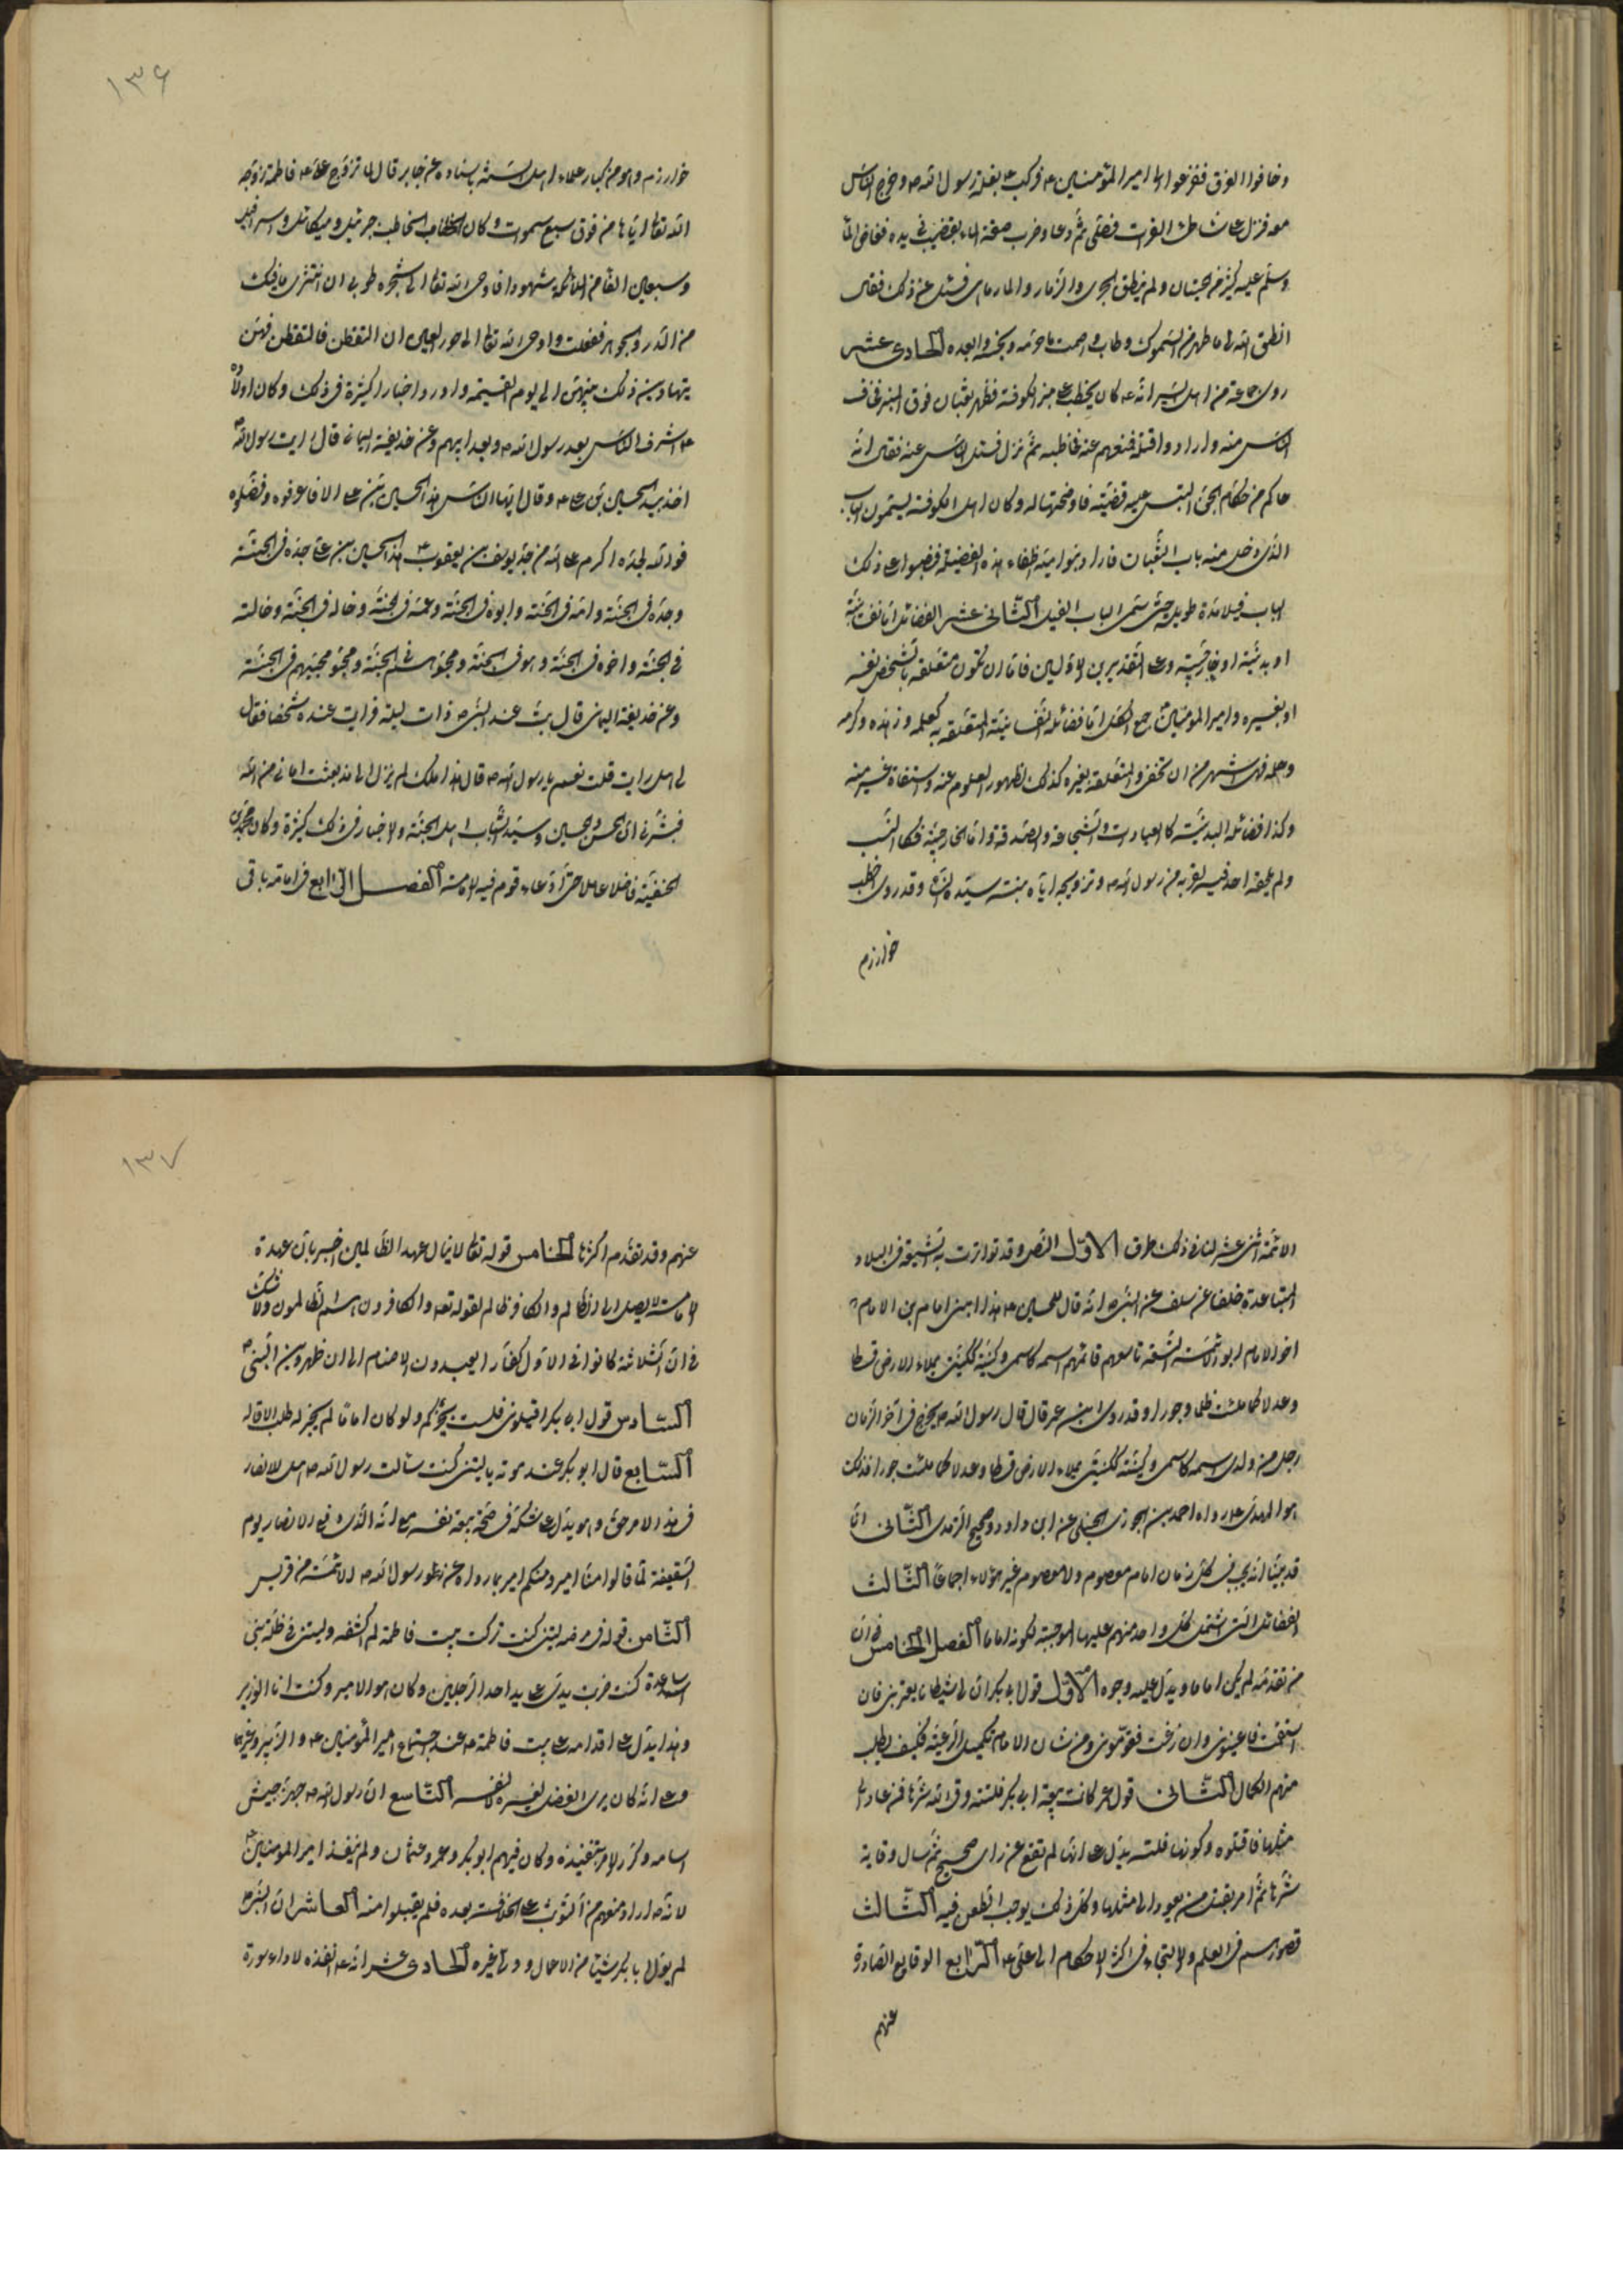 وخافوا الغرق ففزعوا الى امير المؤمنين ع فركب ع بغلة رسول الله ص وخرج الناس
معه فنزل على شاطئ الفرات فصلى ثم دعا وضرب صفحة الماء بقضيب في يده فغاض الماء
وسلم عليه كثير من الحيتان ولم ينطق الجرى والزمار والمارماهى فسئل عن ذلك فقال
انطق الله لى ما طهر من السموك وطاب واصمت ما حرمه ونجسه وابعده الحادى عشر
روى جماعة من اهل السير انه ع كان يخطب على منبر الكوفة فظهر ثعبان فرقى المنبر فخاف
الناس منه وارادوا قتله فمنعهم عنه فخاطبه ثم نزل فسئل الناس عنه فقال انه
حاكم من حكام الجن التبس عليه قضية فاوضحتها له وكان اهل الكوفة يسمون الباب
الذى دخل منه باب الثعبان فاراد بنو امية اطفاء هذه الفضيلة فنصبوا على ذلك
الباب فيلا مدة طويلة حتى سمى الباب الفيل الثانى عشر الفضائل اما نفسانية
او بدنية او خارجية وعلى التقديرين الاولين فاما ان تكون متعلقة بالشخص نفسه
او بغيره وامير المؤمنين جمع الكل اما فضائله النفسانية المتعلقة به كعلمه وزهده وكرمه
وحلمه فهى اشهر من ان تخفى والمتعلقة بغيره كذلك لظهور العلوم عنه واستفادة غيره منه
وكذا فضائله البدنية كالعبادات والشجاعة والصدقة واما الخارجية فكالنسب
ولم يلحقه احد فيه لقربه من رسول الله ص وتزويجه اياه بنته سيدة النساء وقد روى اخطب
خوارزم
١٣۶
خوارزم وهو من كبار علماء اهل السنة باسناده عن جابر قال لما تزوج على ع فاطمة زوجه
الله تعالى اياها من فوق سبع سموات وكان الخاطب جبرئيل وميكائيل واسرافيل
وسبعين الفا من الملائكة شهودا فاوحى الله تعالى الى شجرة طوبى ان انثرى ما فيك
من الدر والجوهر ففعلت واوحى الله تعالى الى حور العين ان التقطن فالتقطن فهن
يتهادين ذلك بينهن الى يوم القيمة واورد اخبارا كثيرة فى ذلك وكان اولاده
ع اشرف الناس بعد رسول الله ص وبعد ابيهم وعن حذيفة اليمان قال رايت رسول الله ص
اخذ بيد الحسين بن على ع وقال ايها الناس هذا الحسين بن على الا فاعرفوه وفضلوه
فو الله لجده اكرم على الله من جد يوسف بن يعقوب ع هذا الحسين بن على جده فى الجنة
وجدته فى الجنة وامه فى الجنة وابوه فى الجنة وعمه فى الجنة وخاله فى الجنة وخالته
فى الجنة واخوه فى الجنة وهو فى الجنة ومحبوهم فى الجنة ومحبو محبيهم فى الجنة
وعن حذيفة اليمانى قال بت عند النبى ص ذات ليلة فرايت عنده شخصا فقال
لى هل رايت قلت نعم يا رسول الله ص قال هذا ملك لم ينزل الى منذ بعثت اتانى من الله
فبشرنى ان الحسن والحسين سيدا شباب اهل الجنة والاخبار فى ذلك كثيرة وكان محمد بن
الحنفية فاضلا عاملا حتى ادعاء قوم فيه الامامة الفصل الرابع فى امامة باقى
الائمة اثنى عشر لنا فى ذلك طرق الاول النص وقد تواترت به الشيعة فى البلاد
المتباعدة خلفا عن سلف عن النبى ص انه قال للحسين ع هذا ابنى امام بن الامام
اخو الامام ابو الائمة التسعة تاسعهم قائمهم اسمه كاسمى وكنيته ككنيتى يملاء الارض قسطا
وعدلا كما ملئت ظلما وجورا وقد روى ابن عمر قال قال رسول الله ص يخرج فى آخر الزمان
رجل من ولدى اسمه كاسمى وكنيته ككنيتى يملاء الارض قسطا وعدلا كما ملئت جورا فذلك
هو المهدى ع رواه احمد بن الجوزى الحنبلى عن ابن داود وصحيح الترمذى الثانى انا
قد بينا انه يجب فى كل زمان امام معصوم ولا معصوم غير هؤلاء اجماعا الثالث
الفضائل التى اشتمل كل واحد منهم عليها الموجبة لكونه اماما الفصل الخامس فى ان
من تقدمه لم يكن اماما ويدل عليه وجوه الاول قول ابى بكر ان لى شيطانا يعترينى فان
استقمت فاعينونى وان زغت فقومونى ومن شان الامام تكميل الرعية فكيف يطلب
منهم الكمال الثانى قول عمر كانت بيعة ابى بكر فلتة وقى الله شرها فمن عاد الى
مثلها فاقتلوه وكونها فلتة يدل على انها لم تقع عن راى صحيح ثم سال وقاية
شرها ثم امر بقتل من يعود الى مثلها وكل ذلك يوجب الطعن فيه الثالث
قصورهم فى العلم والالتجاء فى اكثر الاحكام الى على ع الرابع الوقايع الصادرة
عنهم
١٣٧
عنهم وقد تقدم اكثرها الخامس قوله تعالى لا ينال عهدى الظالمين اخبر بان عهدة
الامامة لا يصل الى الظالم والكافر ظالم لقوله تعالى والكافرون هم الظالمون ولا شك
فى ان الثلاثة كانوا فى الاول كفارا يعبدون الاصنام الى ان ظهر دين النبى ص
السادس قول ابى بكر اقيلونى فلست بخيركم ولو كان اماما لم يجز له طلب الاقالة
السابع قال ابو بكر عند موته يا ليتنى كنت سالت رسول الله ص هل للانصار
فى هذا الامر حق وهو يدل على شكه فى صحة بيعة نفسه مع انه الذى دفع الانصار يوم
السقيفة لما قالوا منا امير ومنكم امير بما رواه عن رسول الله ص الائمة من قريش
الثامن قوله فى مرضه ليتنى كنت تركت بيت فاطمة لم اكشفه وليتنى فى ظلة بنى
الساعدة كنت ضربت يدى على يد احد الرجلين وكان هو الامير وكنت انا الوزير
وهذا يدل على اقدامه على بيت فاطمة ع عند اجتماع امير المؤمنين ع والزبير وغيرهما
وعلى انه كان يرى الفضل لغيره لا نفسه التاسع ان رسول الله ص جهز جيش
اسامه وكرر الامر بتنفيذه وكان فيهم ابو بكر وعمر وعثمان ولم ينفذ امير المؤمنين ع
لانه ص اراد منعهم من التوثب على الخلافة بعده فلم يقبلوا منه العاشر ان النبى ص
لم يول ابا بكر شيئا من الاعمال وولى غيره الحادى عشر انه ع انفذه لاداء سورة